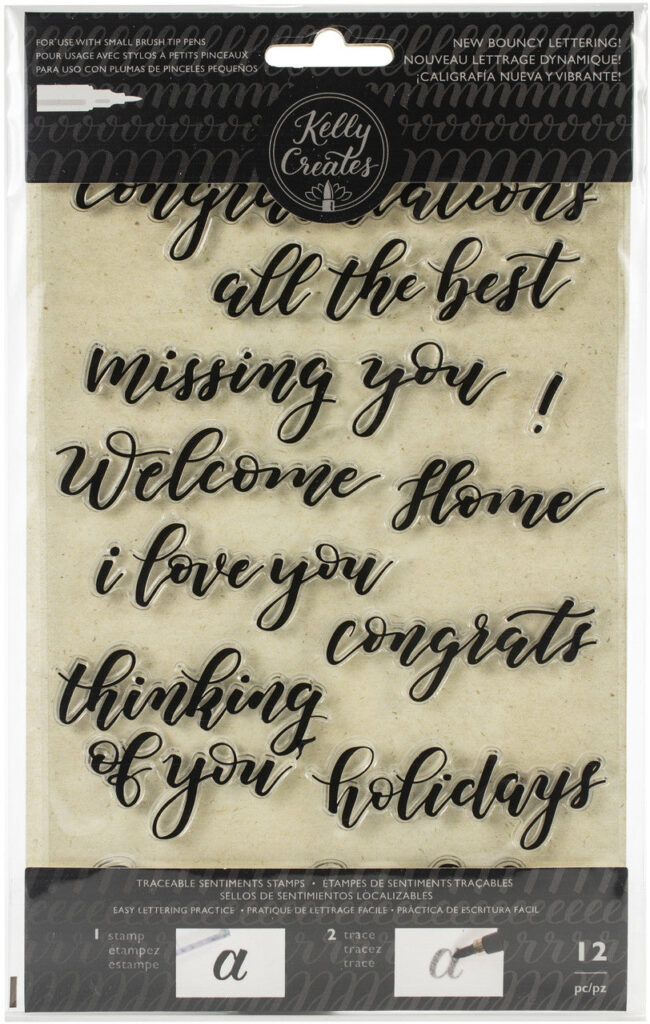 FOR USE WITH SMALL BRUSH TIP PENS
POUR USAGE AVEC STYLOS À PETITS PINCEAUX
PARA USO CON PLUMAS DE PINCELES PEQUEÑOS
NEW BOUNCY LETTERING!
NOUVEAU LETTRAGE DYNAMIQUE!
¡CALIGRAFÍA NUEVA Y VIBRANTE!
Kelly
Creates
congratulations
all the best
missing you
!
Welcome Home
i love you
congrats
thinking
of you
holidays
TRACEABLE SENTIMENTS STAMPS • ÉTAMPES DE SENTIMENTS TRAÇABLES
SELLOS DE SENTIMIENTOS LOCALIZABLES
EASY LETTERING PRACTICE • PRATIQUE DE LETTRAGE FACILE • PRÁCTICA DE ESCRITURA FACIL
1 stamp
etampez
estampe
a
2 trace
tracez
trace
a
12
pc/pz